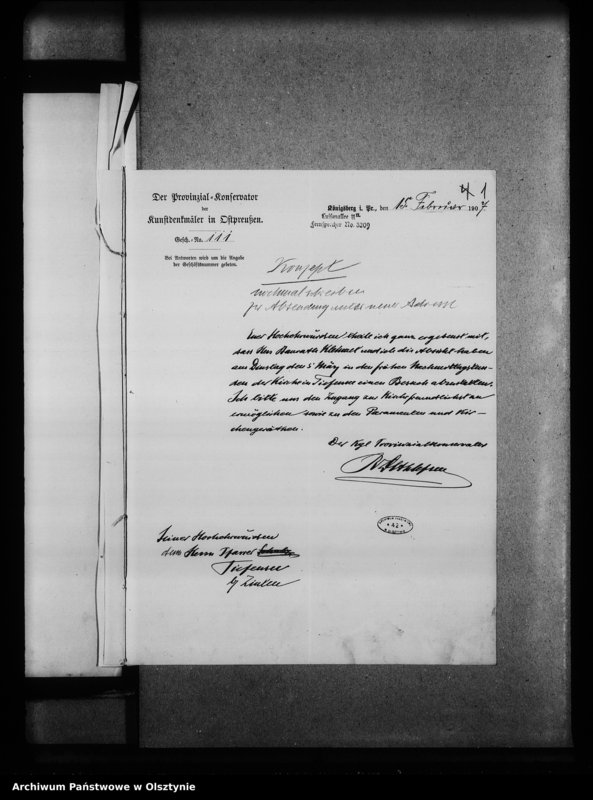 1
Der Provinzial-Konservator
der
Kunstdenkmäler in Ostpreußen.
Gesch.-No. 111
Bei Antworten wird um die Angabe
der Geschäftsnummer gebeten.
Königsberg i. Pr., den 15 Februar 1907.
Luisenallee
Fernsprecher No. 3209
Konzept
Euer Hochehrwürden theile ich ganz ergebenst mit,
dass Herr Baurath und ich die Absicht haben
am Dienstag den 5 März in den frühen Nachmittagsstun-
den der Kirche in Tiefensee einen Besuch abzustatten.
Ich bitte uns den Zugang zur Kirche freundlichst zu
ermöglichen sowie zu den Paramenten und Kir-
chengeräthen.
Der Kgl Provinzialkonservator
Seiner Hochehrwürden
dem Herrn Pfarrer
Tiefensee
b/ Zinten
42
Archiwum Państwowe w Olsztynie